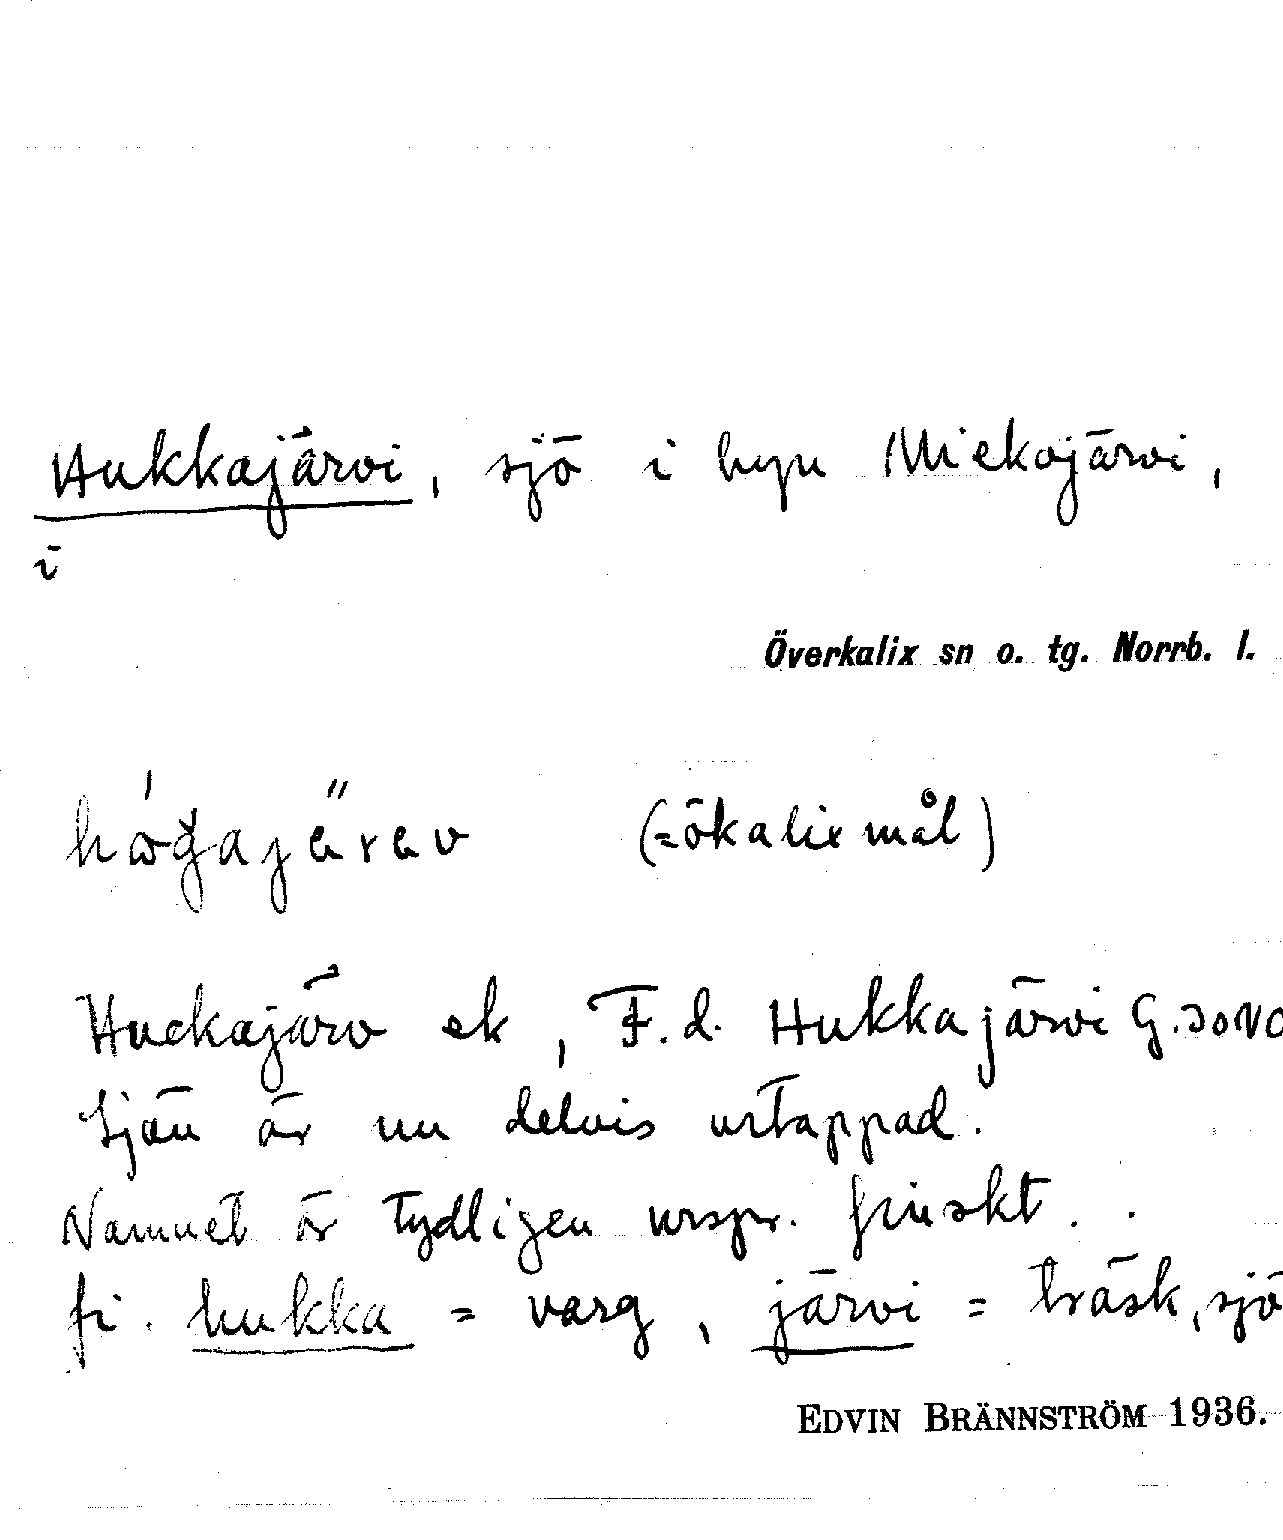 Hukkajärvi, sjö i byn Miekojärvi,
i
Överkalix sn o. tg. Norrb. l.
(=ökalixmål)
Huckajärv ek, F.d. Hukkajärvi
Sjön är nu delvis urtappad.
Namnet är tydligen urspr. finskt.
fi. hukka = varg, järvi = träsk, sjö
EDVIN BRÄNNSTRÖM 1936.